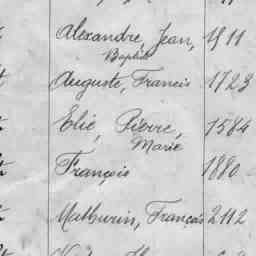 Alexandre, Jean, 1911
Baptiste
Auguste, Francis 1723
Elie, Pierre, 1584
Marie
François 1880
Mathurin, François 2112